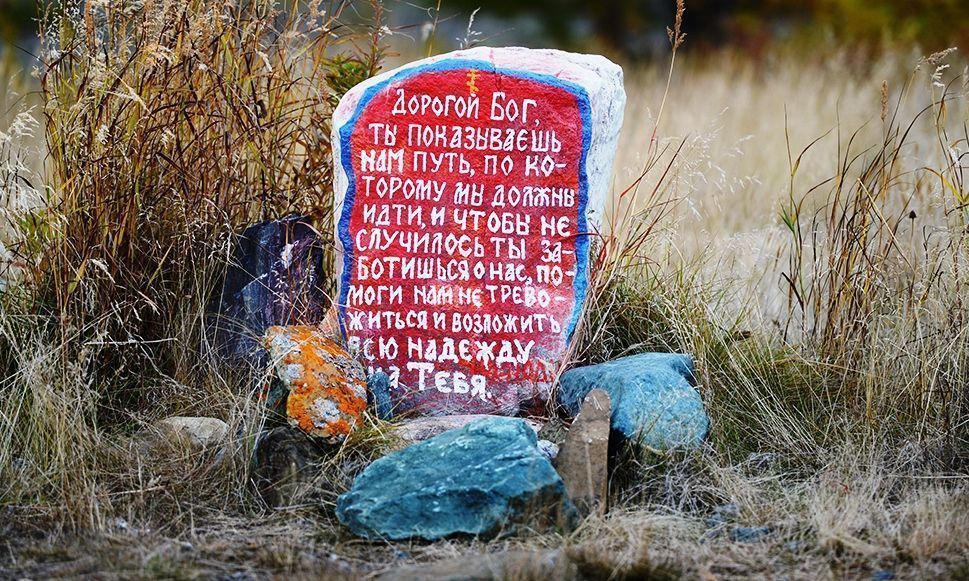 Дорогой Бог,
ты показываешь
нам путь, по ко-
торому мы должны
идти, и чтобы не
случилось ты за-
ботишься о нас, по-
моги нам не трево-
житься и возложить
всю надежду
на Тебя.